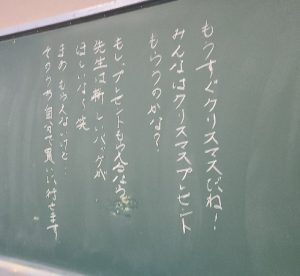 もうすぐクリスマスだね!
みんなはクリスマスプレゼント
もらうのかな?
もし、プレゼントもらえるなら
先生は新しいバッグが
ほしいな〜笑
まぁもらえないけど…
そのうち自分で買いに行きます